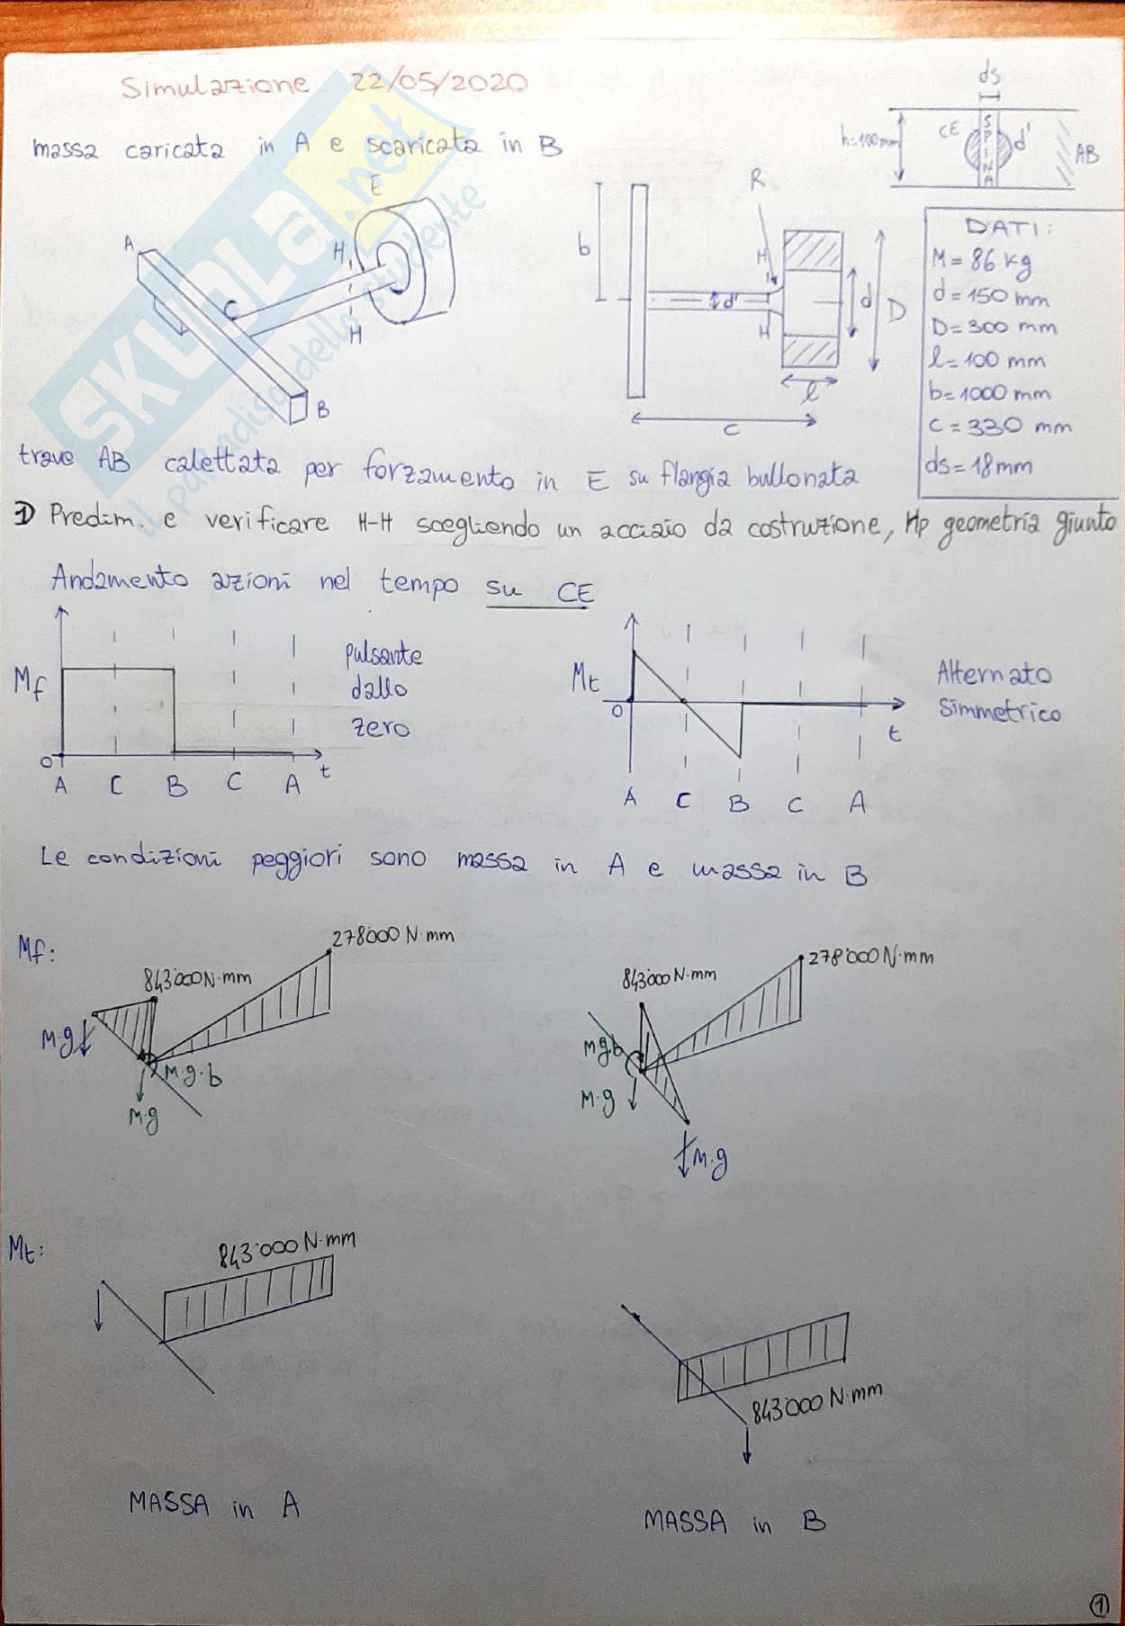 Simulazione 22/05/2020
massa caricata in A e scaricata in B
ds
h=100mm
CE
SPINA
d'
AB
A
C
H
H
E
B
b
R
H
H
d'
d
D
l
c
DATI:
M = 86 kg
d = 150 mm
D = 300 mm
l = 100 mm
b = 1000 mm
c = 330 mm
ds = 18mm
trave AB calettata per forzamento in E su flangia bullonata
1) Predim. e verificare H-H scegliendo un acciaio da costruzione, Hp geometria giunto
Andamento azioni nel tempo su CE
Mf
0
A C B C A t
pulsante
dallo
zero
Mt
0
A C B C A
t
Alternato
Simmetrico
Le condizioni peggiori sono massa in A e massa in B
Mf:
278'000 N·mm
843'000 N·mm
M·g
M·g·b
M·g
278'000 N·mm
843'000 N·mm
Mgb
M·g
M·g
Mt:
843'000 N·mm
843'000 N·mm
MASSA in A
MASSA in B
1
SKUOLA.net
il paradiso dello studente